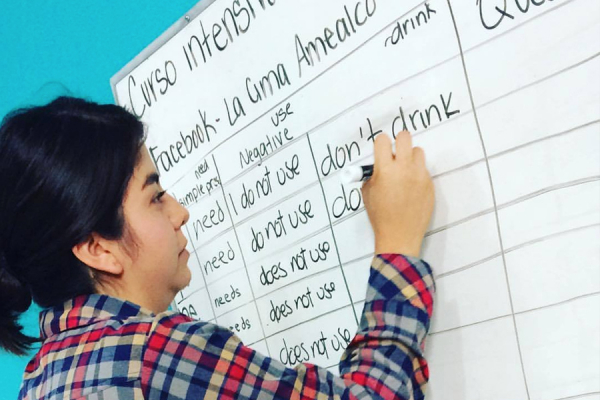 Curso Intensi
Facebook - La Cima Amealco
need use -drink Que
simple pres Negative
need I do not use don't drink
need do not use do
needs does not use
needs does not use
does not use